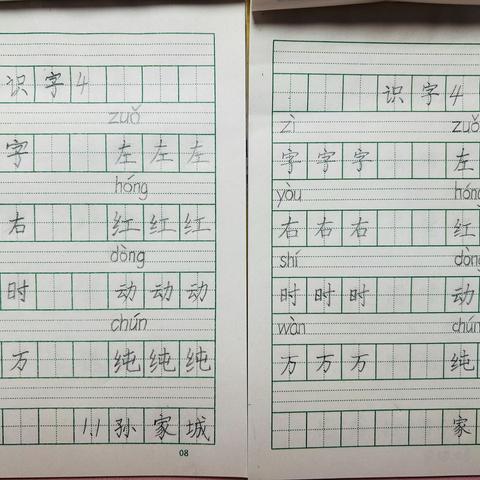 识字4
zuǒ
字 左左左
hóng
右 红红红
dòng
时 动动动
chún
万 纯纯纯
1.1 孙家城
08
识字4
zì zuǒ
字字字 左
yòu hóng
右右右 红
shí dòng
时时时 动
wàn chún
万万万 纯
家